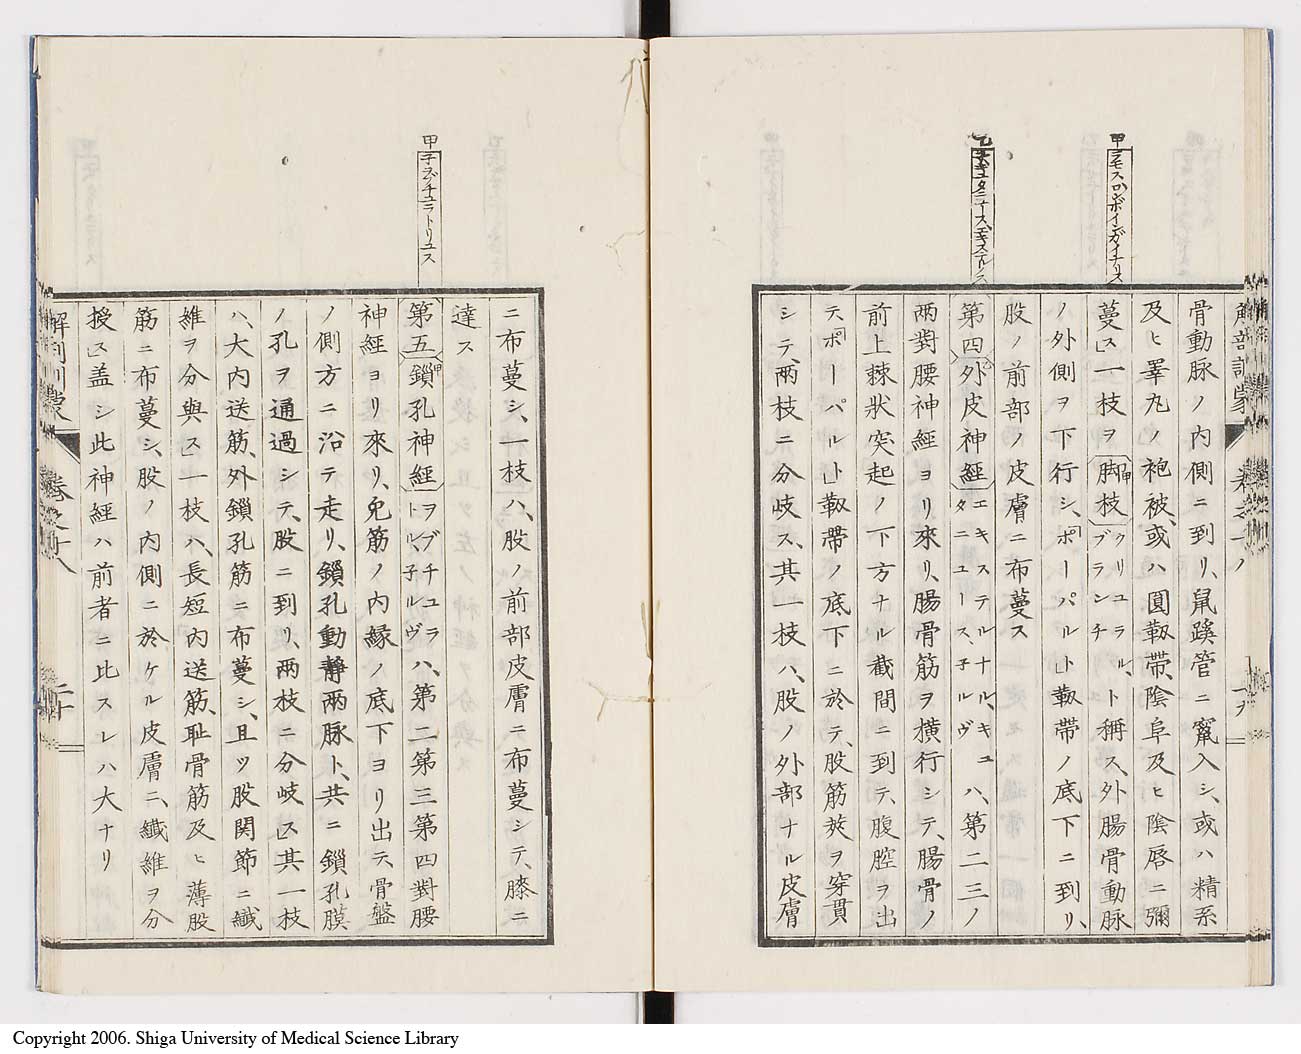 骨動脉ノ内側ニ到リ、鼠蹊管ニ竄入シ、或ハ精系
及ヒ睪丸ノ袍被、或ハ圓靱帶、陰阜及ヒ陰唇ニ彌
蔓ス」一枝ヲ脚枝クリユラル、ブランチト稱ス、外腸骨動脉
ノ外側ヲ下行シ、「ポーパルト」靱帶ノ底下ニ到リ、
股ノ前部ノ皮膚ニ布蔓ス
第四外皮神經エキステルナル、キュタニユース、子ルヴハ、第二三ノ
兩對腰神經ヨリ來リ、腸骨筋ヲ横行シテ、腸骨ノ
前上棘狀突起ノ下方ナル截間ニ到テ、腹腔ヲ出
テ「ポーパルト」靱帶ノ底下ニ於テ、股筋莢ヲ穿貫
シテ、兩枝ニ分岐ス、其一枝ハ、股ノ外部ナル皮膚
ニ布蔓シ、一枝ハ、股ノ前部皮膚ニ布蔓シテ、膝ニ
達ス
甲 子ヲブチュラトリユス
第五鎖孔神經ヲブチユラトル、子ルヴハ、第二第三第四對腰
神經ヨリ來リ、免筋ノ内縁ノ底下ヨリ出テ、骨盤
ノ側方ニ沿テ走リ、鎖孔動靜兩脉ト、共ニ鎖孔膜
ノ孔ヲ通過シテ、股ニ到リ、兩枝ニ分岐ス」其一枝
ハ、大内送筋、外鎖孔筋ニ布蔓シ、且ツ股関節ニ纖
維ヲ分與ス」一枝ハ、長短内送筋、耻骨筋及ヒ薄股
筋ニ布蔓シ、股ノ内側ニ於ケル皮膚ニ、纖維ヲ分
授ス」蓋シ此神經ハ前者ニ比スレハ大ナリ
Copyright 2006. Shiga University of Medical Science Library